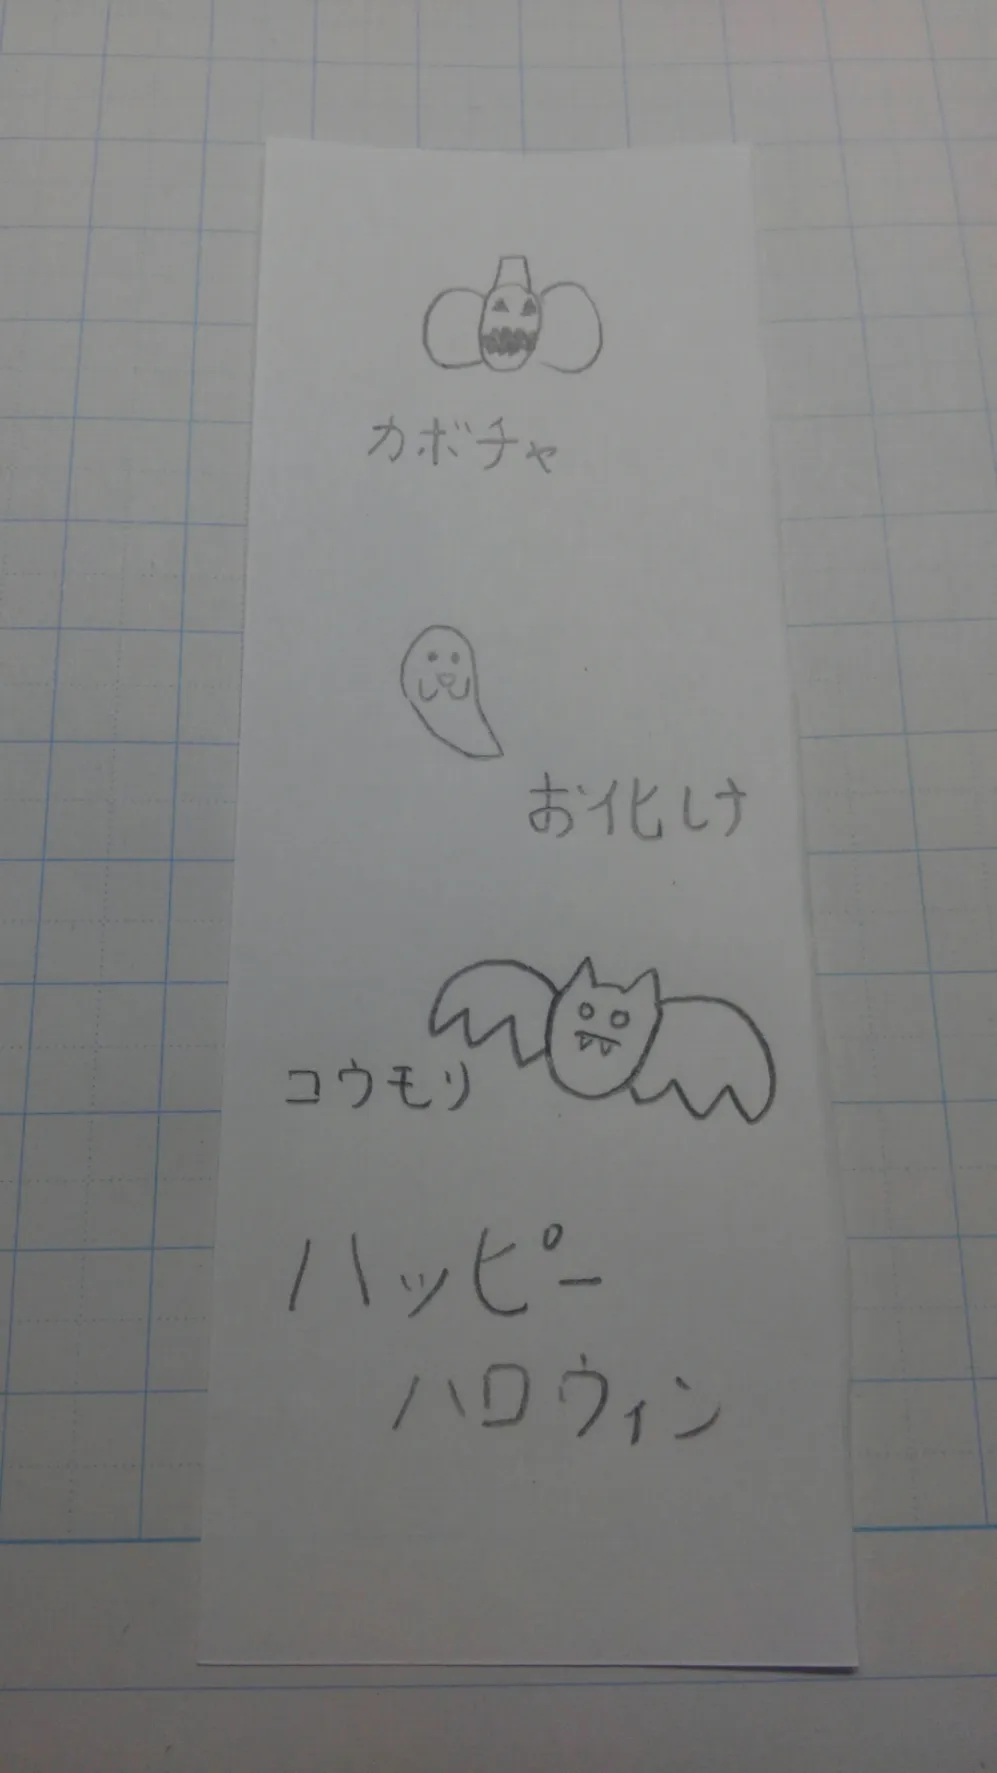 カボチャ
お化け
コウモリ
ハッピー
ハロウィン